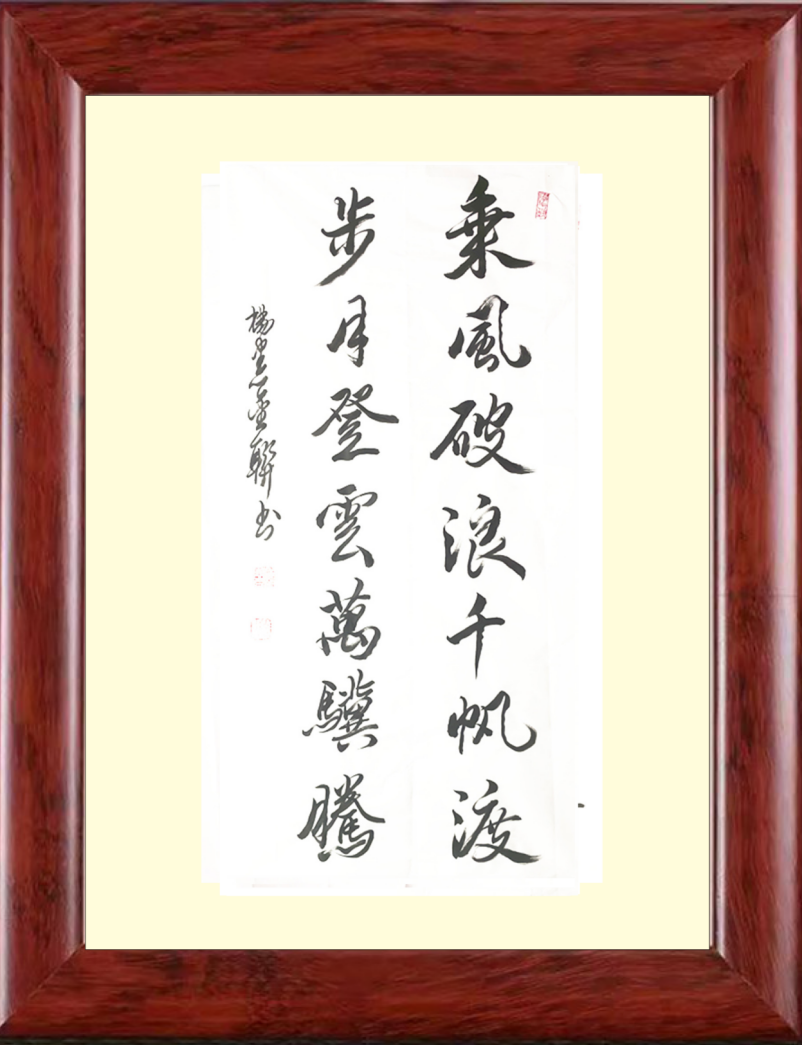 乘風破浪千帆渡
步月登雲萬驥騰
楊 聯書